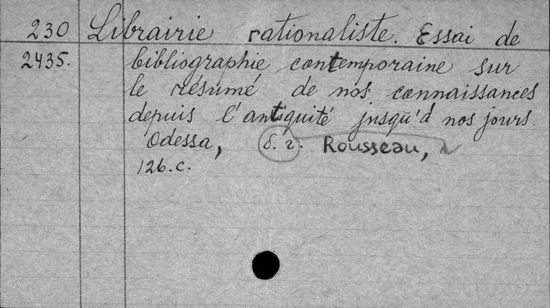 230 Librairie rationaliste. Essai de
2435. bibliographie contemporaine sur
le résumé de nos connaissances
depuis l'antiquité jusqu'à nos jours.
Odessa, б. г. Rousseau,
126.c.